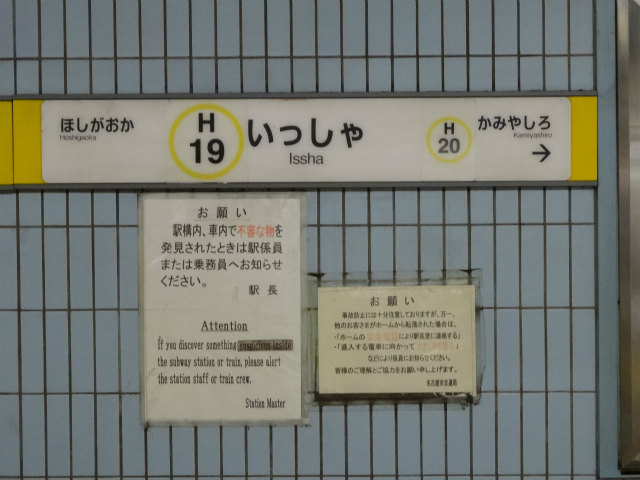 ほしがおか
Hoshigaoka
H
19
いっしゃ
Issha
H
20
かみやしろ
Kamiyashiro
→
お願い
駅構内、車内で不審な物を
発見されたときは駅係員
または乗務員へお知らせ
ください。
駅長
Attention
If you discover something suspicious inside
the subway station or train, please alert
the station staff or train crew.
Station Master
お願い
事故防止には十分注意しておりますが、万一、
他のお客さまがホームから転落された場合は、
・「ホームの非常電話により駅長室に連絡する」
・「進入する電車に向かって
」
などにより係員にお知らせください。
皆様のご理解とご協力をお願い申し上げます。
名古屋市交通局